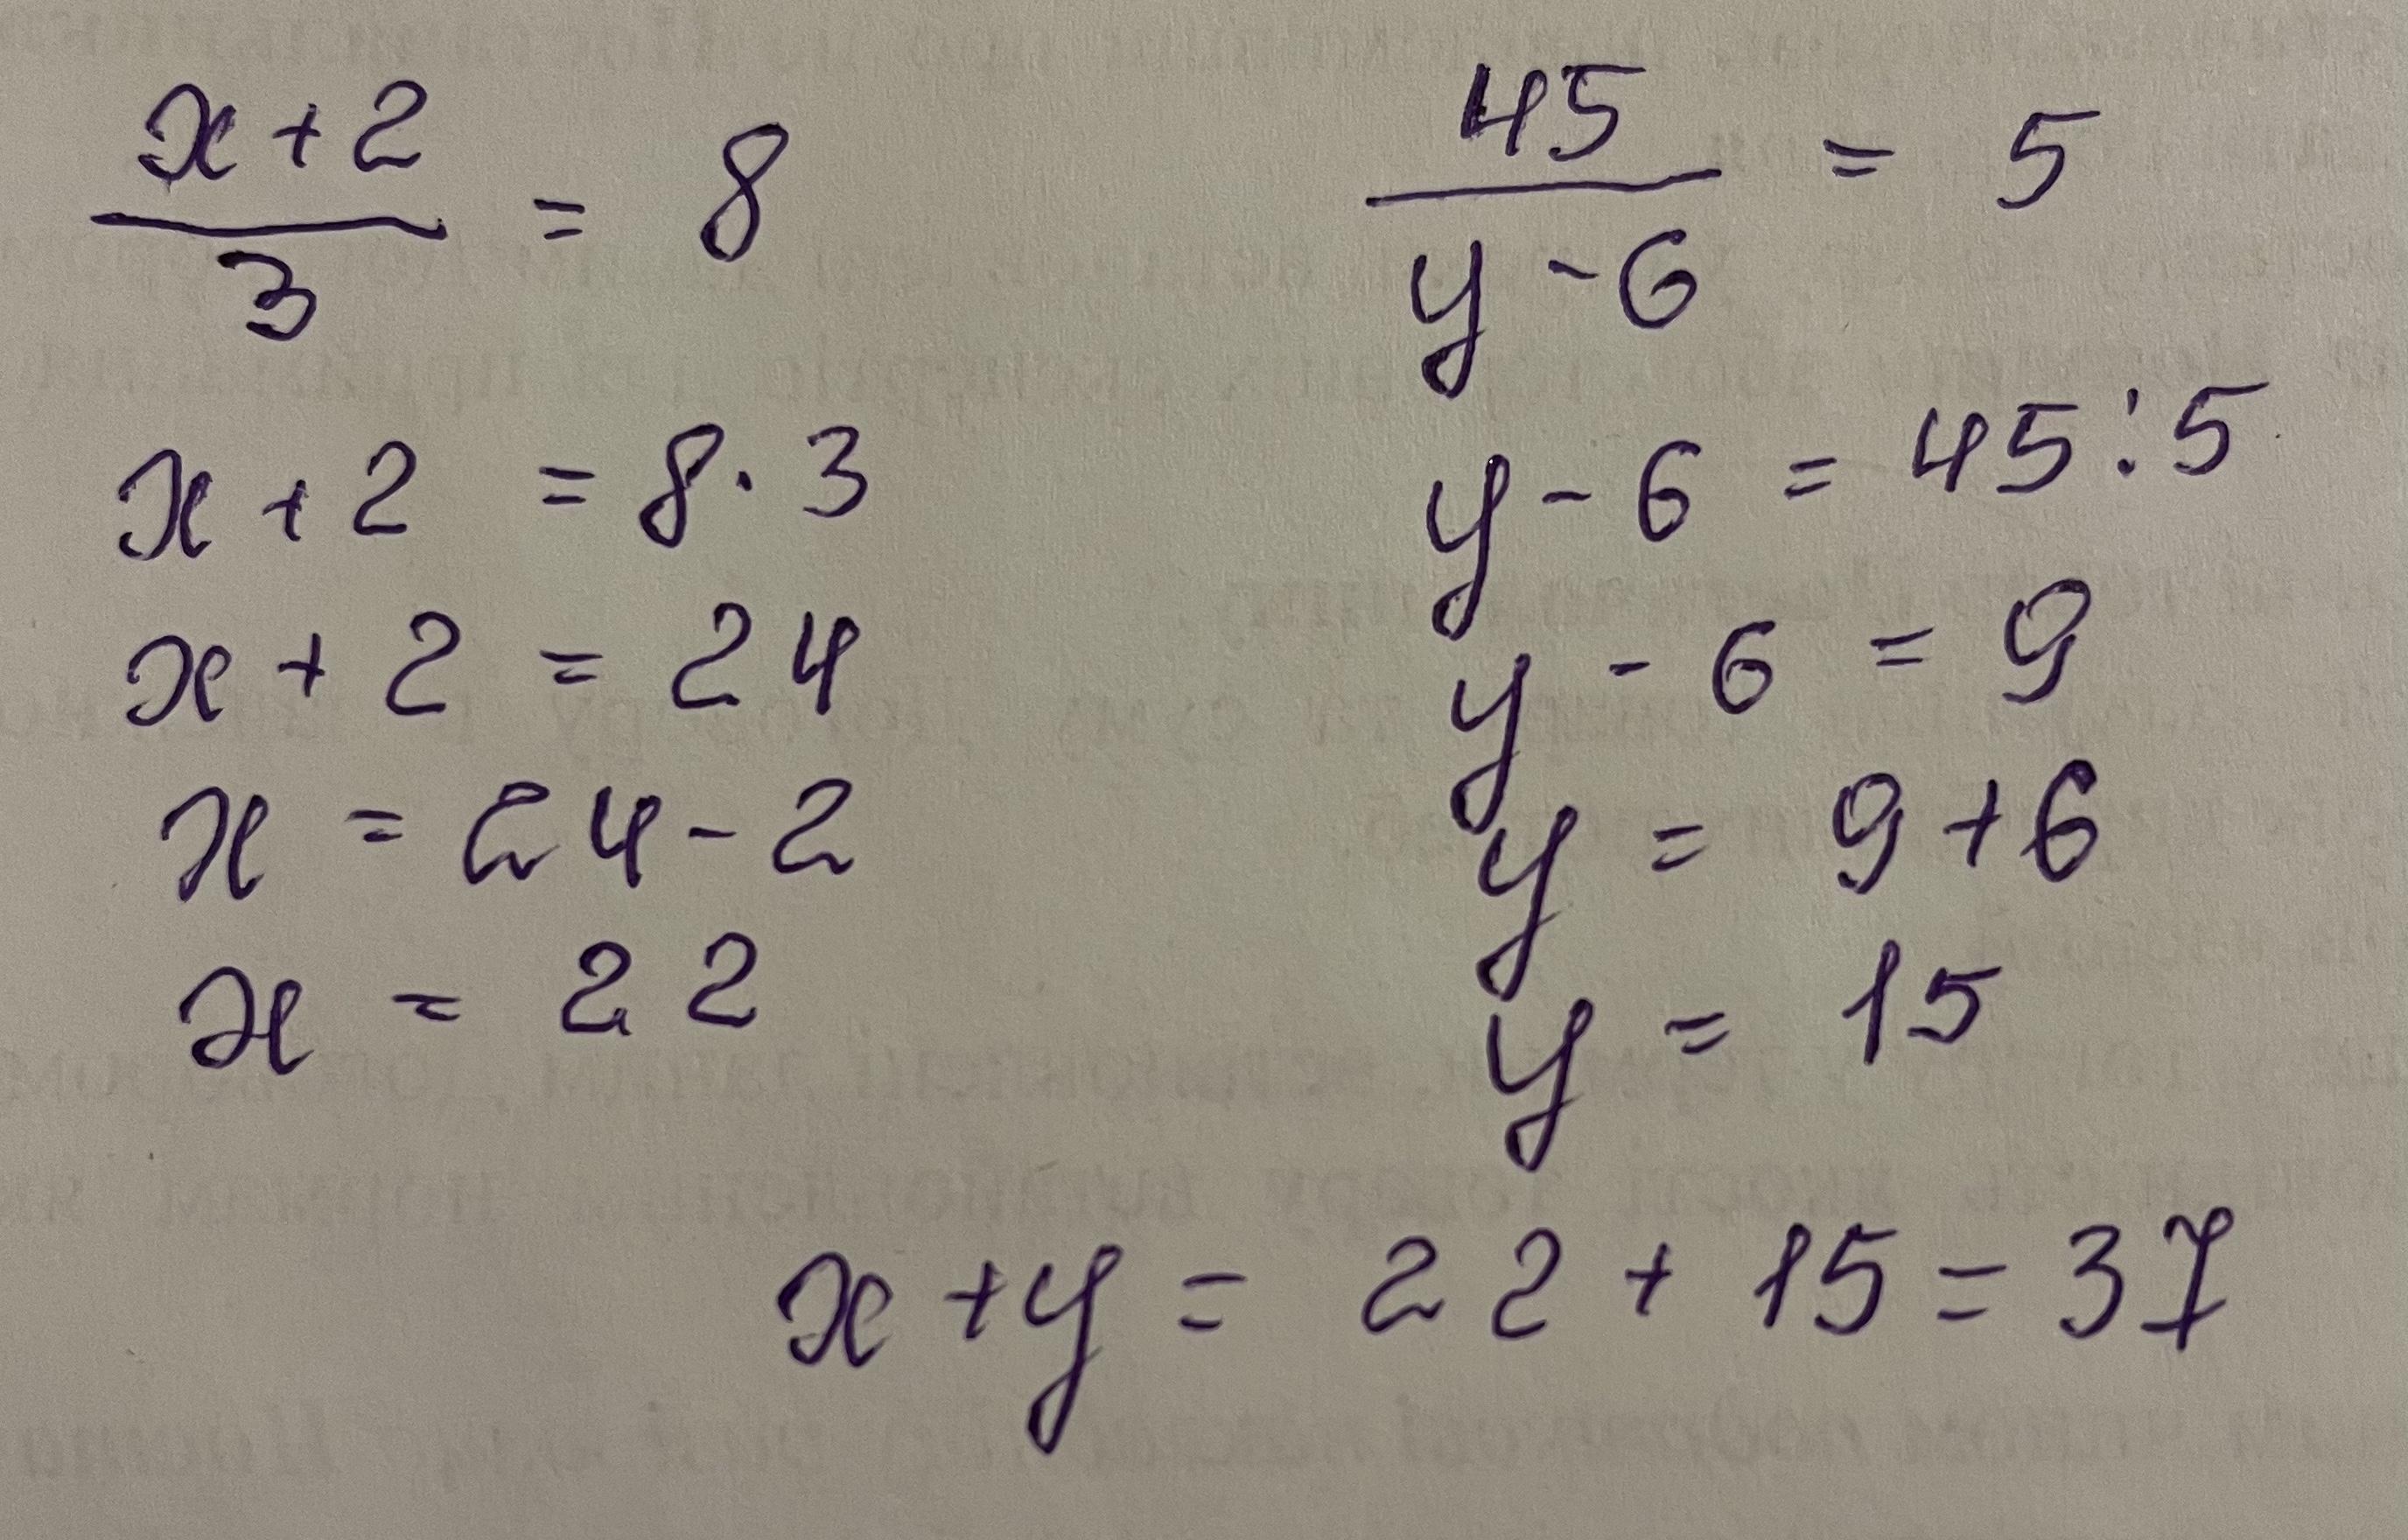 x + 2 / 3 = 8
x + 2 = 8 · 3
x + 2 = 24
x = 24 - 2
x = 22
45 / y - 6 = 5
y - 6 = 45 : 5
y - 6 = 9
y = 9 + 6
y = 15
x + y = 22 + 15 = 37